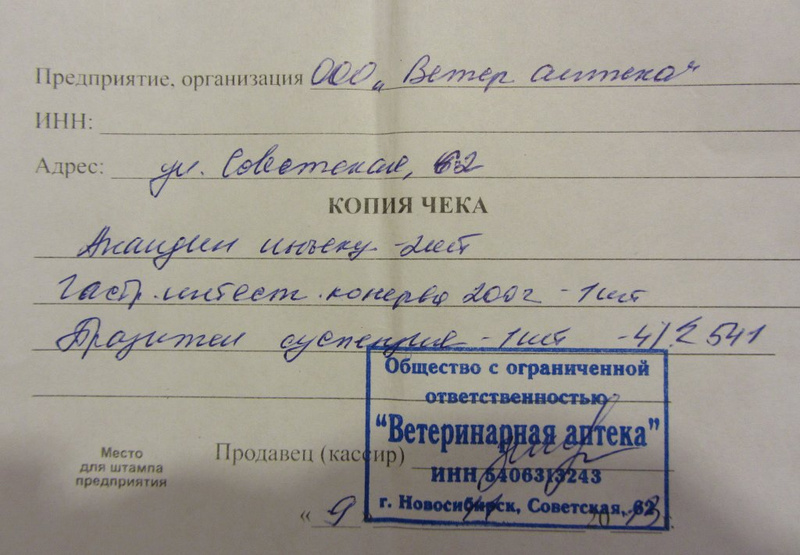 Предприятие, организация ООО „Ветер аптека"
ИНН:
Адрес: ул. Советская, 62
КОПИЯ ЧЕКА
Анандин инъекц -2шт
Гастр. интест. консерва 200г - 1шт
Празител суспензия - 1шт
541
Общество с ограниченной
ответственностью
"Ветеринарная аптека"
ИНН 5406313243
г. Новосибирск, Советская, 62
Место
для штампа
предприятия
Продавец (кассир)
« 9 » 2013